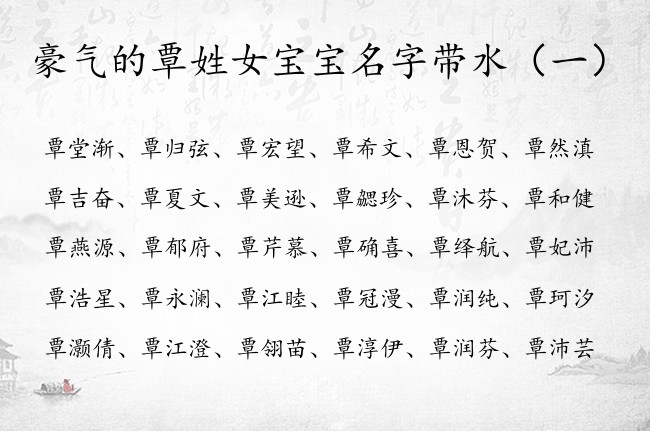 豪气的覃姓女宝宝名字带水（一）
覃堂渐、覃归弦、覃宏望、覃希文、覃恩贺、覃然滇
覃吉奋、覃夏文、覃美逊、覃勰珍、覃沐芬、覃和健
覃燕源、覃郁府、覃芹慕、覃确喜、覃绎航、覃妃沛
覃浩星、覃永澜、覃江睦、覃冠漫、覃润纯、覃珂汐
覃灏倩、覃江澄、覃翎苗、覃淳伊、覃润芬、覃沛芸